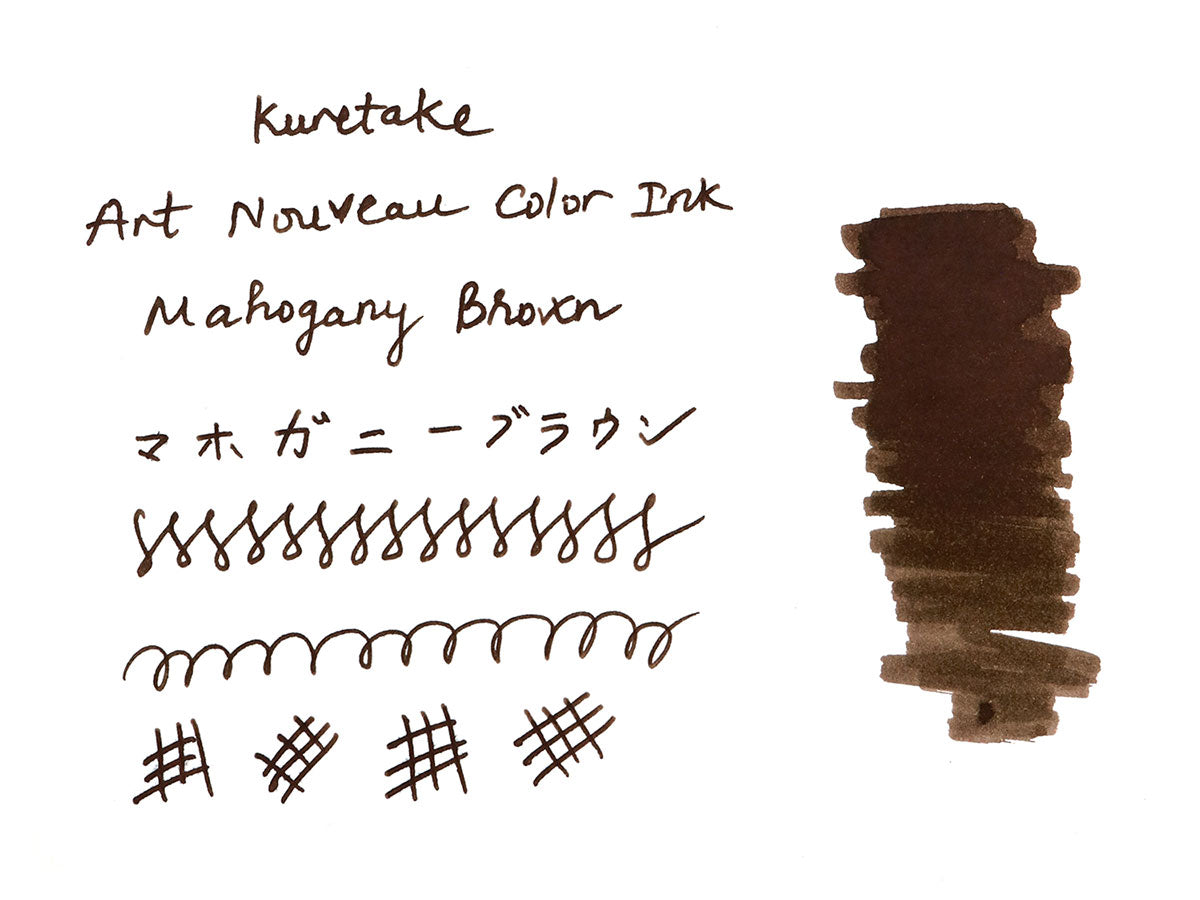 Kuretake
Art Nouveau Color Ink
Mahogany Brown
マホガニーブラウン